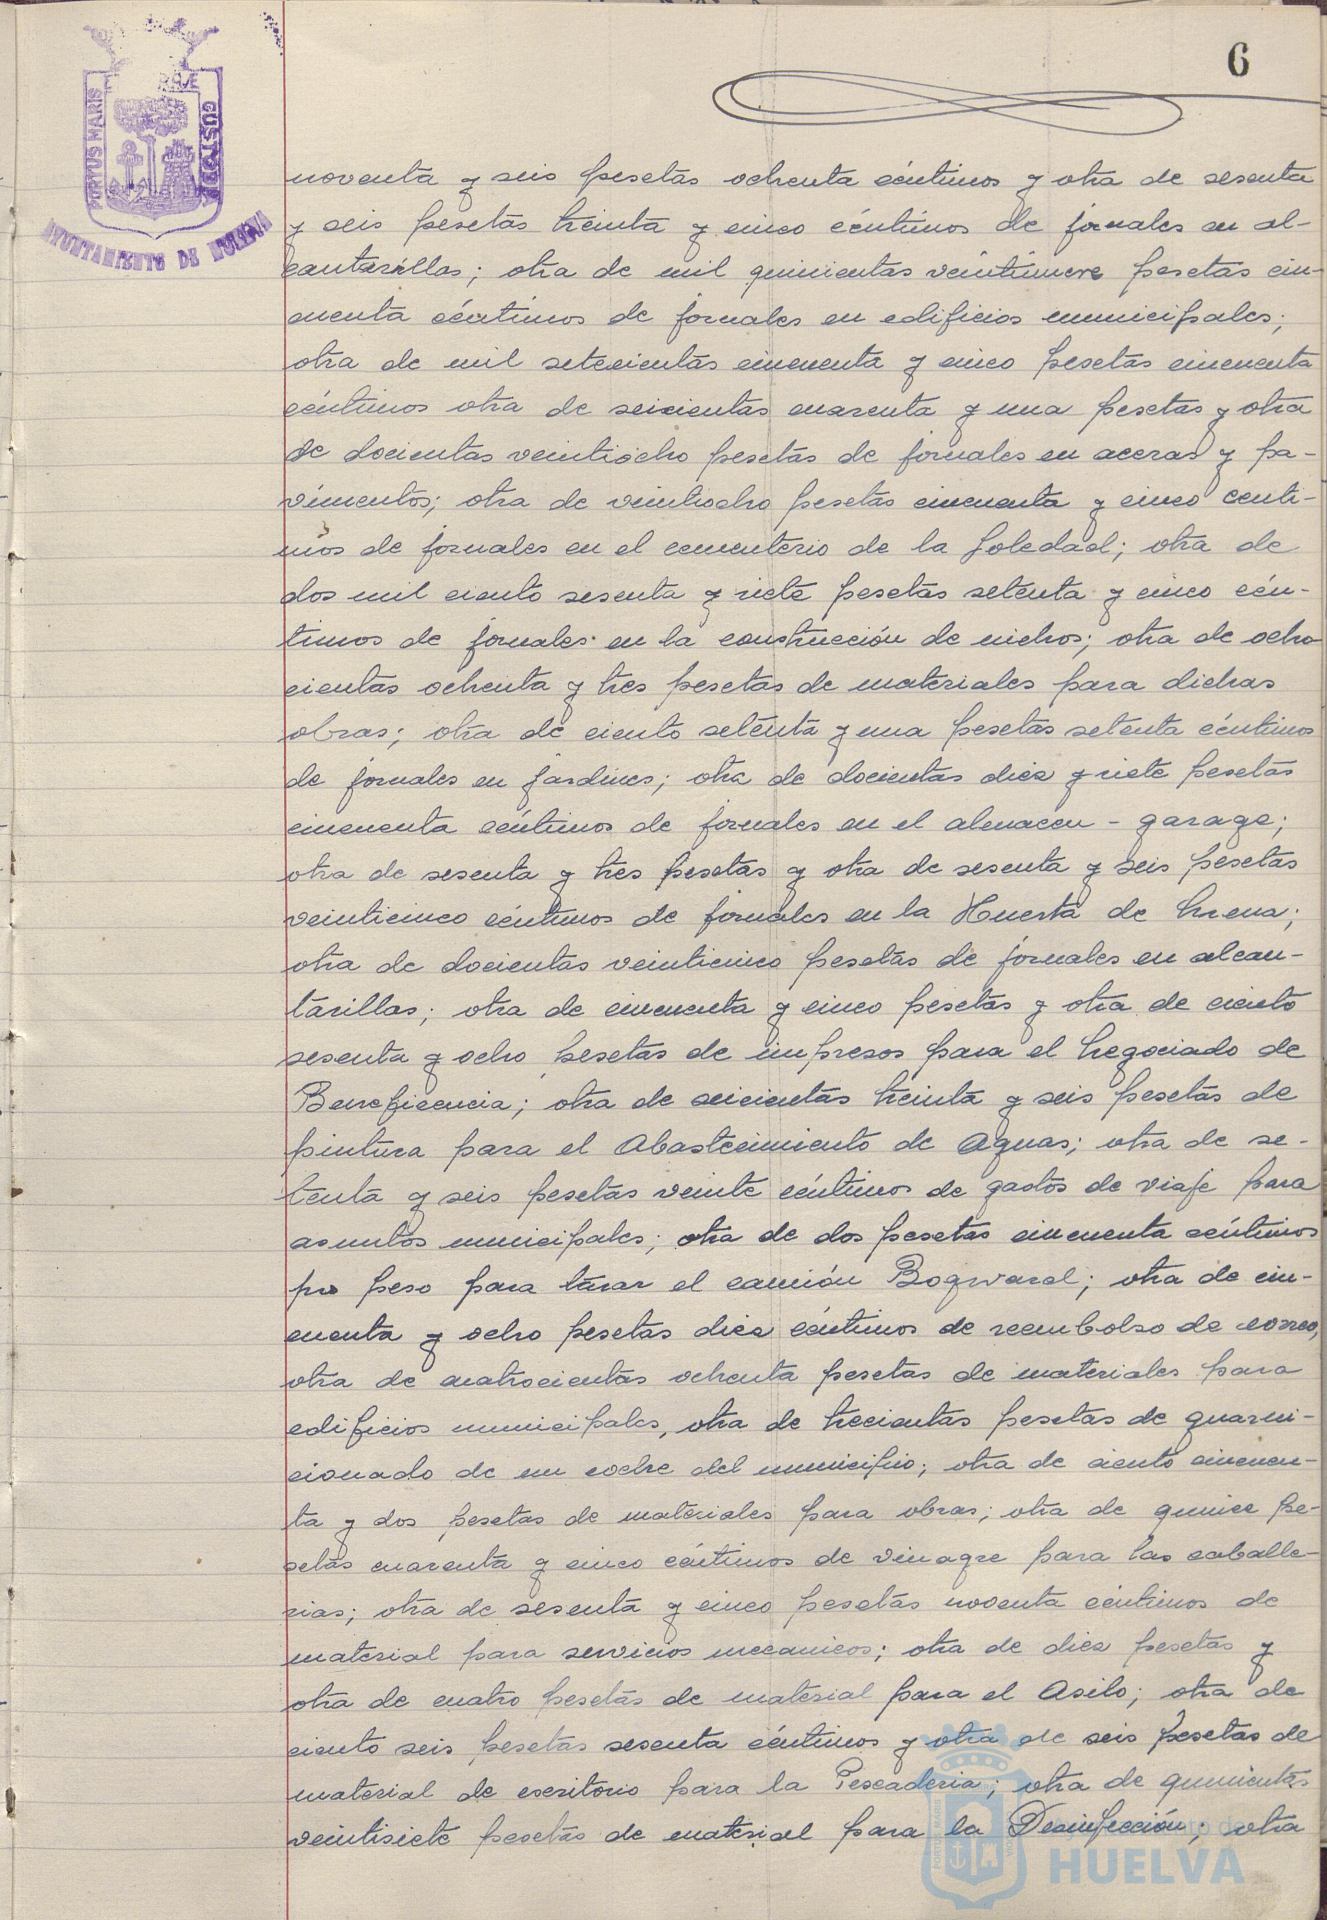 6
PORTUS MARIS
CUSTODIA
AYUNTAMIENTO DE HUELVA
noventa y seis pesetas ochenta céntimos y otra de sesenta
y seis pesetas treinta y cinco céntimos de jornales en al-
cantarillas; otra de mil quinientas veintinueve pesetas cin-
cuenta céntimos de jornales en edificios municipales;
otra de mil setecientas cincuenta y cinco pesetas cincuenta
céntimos otra de seicientas cuarenta y una pesetas y otra
de docientas veintiocho pesetas de jornales en aceras y pa-
vimentos; otra de veintiocho pesetas cincuenta y cinco centi-
mos de jornales en el cementerio de la Soledad; otra de
dos mil ciento sesenta y siete pesetas setenta y cinco cén-
timos de jornales en la construcción de nichos; otra de ocho
cientas ochenta y tres pesetas de materiales para dichas
obras; otra de ciento setenta y una pesetas setenta céntimos
de jornales en jardines; otra de docientas diez y siete pesetas
cincuenta céntimos de jornales en el almacen - garage;
otra de sesenta y tres pesetas y otra de sesenta y seis pesetas
veinticinco céntimos de jornales en la Huerta de Mena;
otra de docientas veinticinco pesetas de jornales en alcan-
tarillas; otra de cincuenta y cinco pesetas y otra de ciento
sesenta y ocho pesetas de impresos para el Negociado de
Beneficencia; otra de seicientas treinta y seis pesetas de
pintura para el Abastecimiento de Aguas; otra de se-
tenta y seis pesetas veinte céntimos de gastos de viaje para
asuntos municipales; otra de dos pesetas cincuenta céntimos
por peso para tarar el camión Bogward; otra de cin-
cuenta y ocho pesetas diez céntimos de reembolso de correo,
otra de cuatrocientas ochenta pesetas de materiales para
edificios municipales, otra de trecientas pesetas de guarni-
cionado de un coche del municipio; otra de ciento cincuen-
ta y dos pesetas de materiales para obras; otra de quince pe-
setas cuarenta y cinco céntimos de vinagre para las caballe-
rias; otra de sesenta y cinco pesetas noventa céntimos de
material para servicios mecanicos; otra de diez pesetas y
otra de cuatro pesetas de material para el Asilo; otra de
ciento seis pesetas sesenta céntimos y otra de seis pesetas de
material de escritorio para la Pescaderia; otra de quinientas
veintisiete pesetas de material para la Desinfección; otra
HUELVA